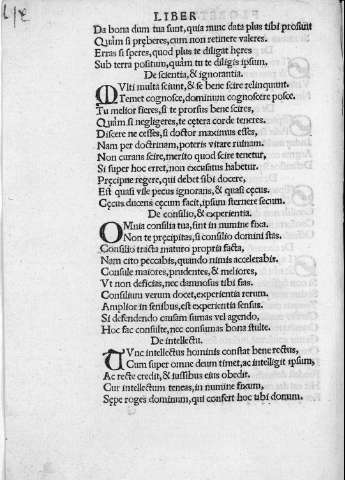 LIBER
Da bona dum tua sunt, quia nunc data plus tibi prosunt
Quàm si pręberes, cum non retinere valeres.
Erras si speres, quod plus te diligat hęres
Sub terra positum, quàm tu te diligis ipsum.
De scientia, & ignorantia.
MVlti multa sciunt, & se bene scire relinquunt.
Temet cognosce, dominium cognoscere posce.
Tu melior fieres, si te prorsus bene scires,
Quàm si negligeres, te cętera corde teneres.
Discere ne cesses, si doctor maximus esses,
Nam per doctrinam, poteris vitare ruinam.
Non curans scire, merito quod scire tenetur,
Si super hoc erret, non excusatus habetur.
Pręcipue regere, qui debet sibi docere,
Est quasi vile pecus ignorans, & quasi cęcus.
Cęcus ducens cęcum facit, ipsum sternere secum.
De consilio, & experientia.
OMnia consilia tua, sint in numine fixa.
Non te pręcipitas, si consilio domini stas.
Consilio tracta maturo propria facta,
Nam cito peccabis, quando nimis accelerabis.
Consule maiores, prudentes, & meliores,
Vt non deficias, nec damnosus tibi fias.
Consilium verum docet, experientia rerum.
Amplior in sensibus, est experientia sensus.
Si defendendo causam sumas vel agendo,
Hoc fac consulte, nec consumas bona stulte.
De intellectu.
TVnc intellectus hominis constat bene rectus,
Cum super omne deum timet, ac intelligit ipsum,
Ac recte credit, & iussibus eius obedit.
Cur intellectum teneas, in numine fixum,
Sępe roges dominum, qui confert hoc tibi donum.